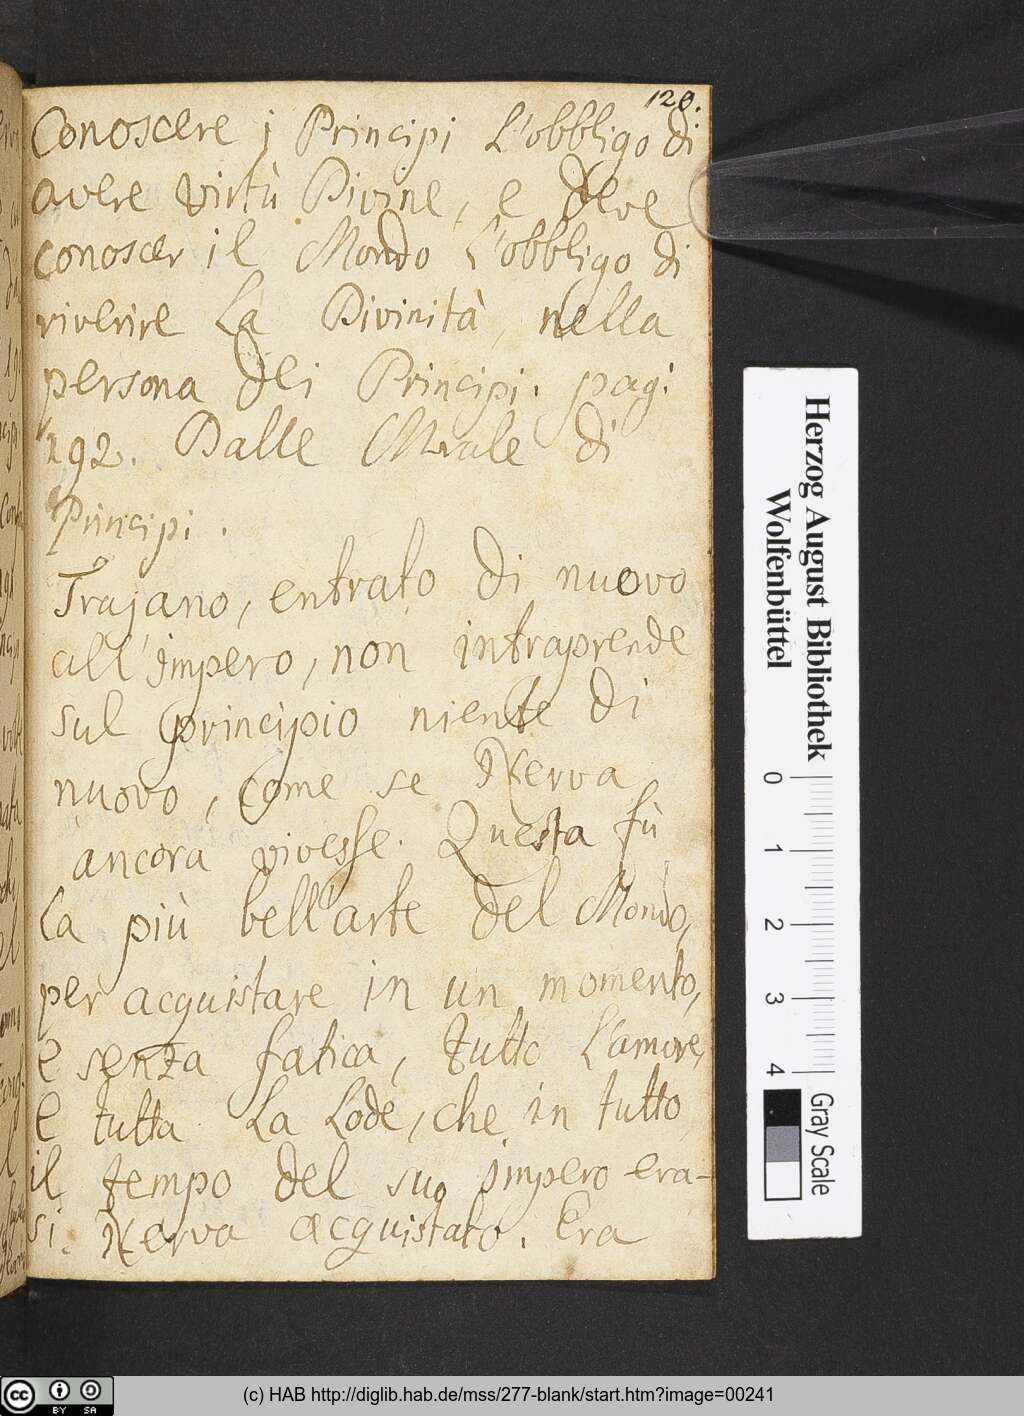 120.
Conoscere i Principi L'obbligo di
avere virtù Divine, e deve
conoscer il Mondo L'obbligo di
riverire La Divinità, nella
persona dei Principi. pagi
192. Dalle Morale di
Principi.
Trajano, entrato di nuovo
all'impero, non intraprende
sul principio niente di
nuovo, come se Nerva
ancora vivesse. Questa fù
La più bell'arte del Mondo,
per acquistare in un momento,
e senza fatica, tutto L'amore,
e tutta La Lode, che in tutto
il tempo del suo impero era-
si Nerva acquistato. Era
Herzog August Bibliothek
Wolfenbüttel
0 1 2 3 4
Gray Scale
cc BY SA
(c) HAB http://diglib.hab.de/mss/277-blank/start.htm?image=00241